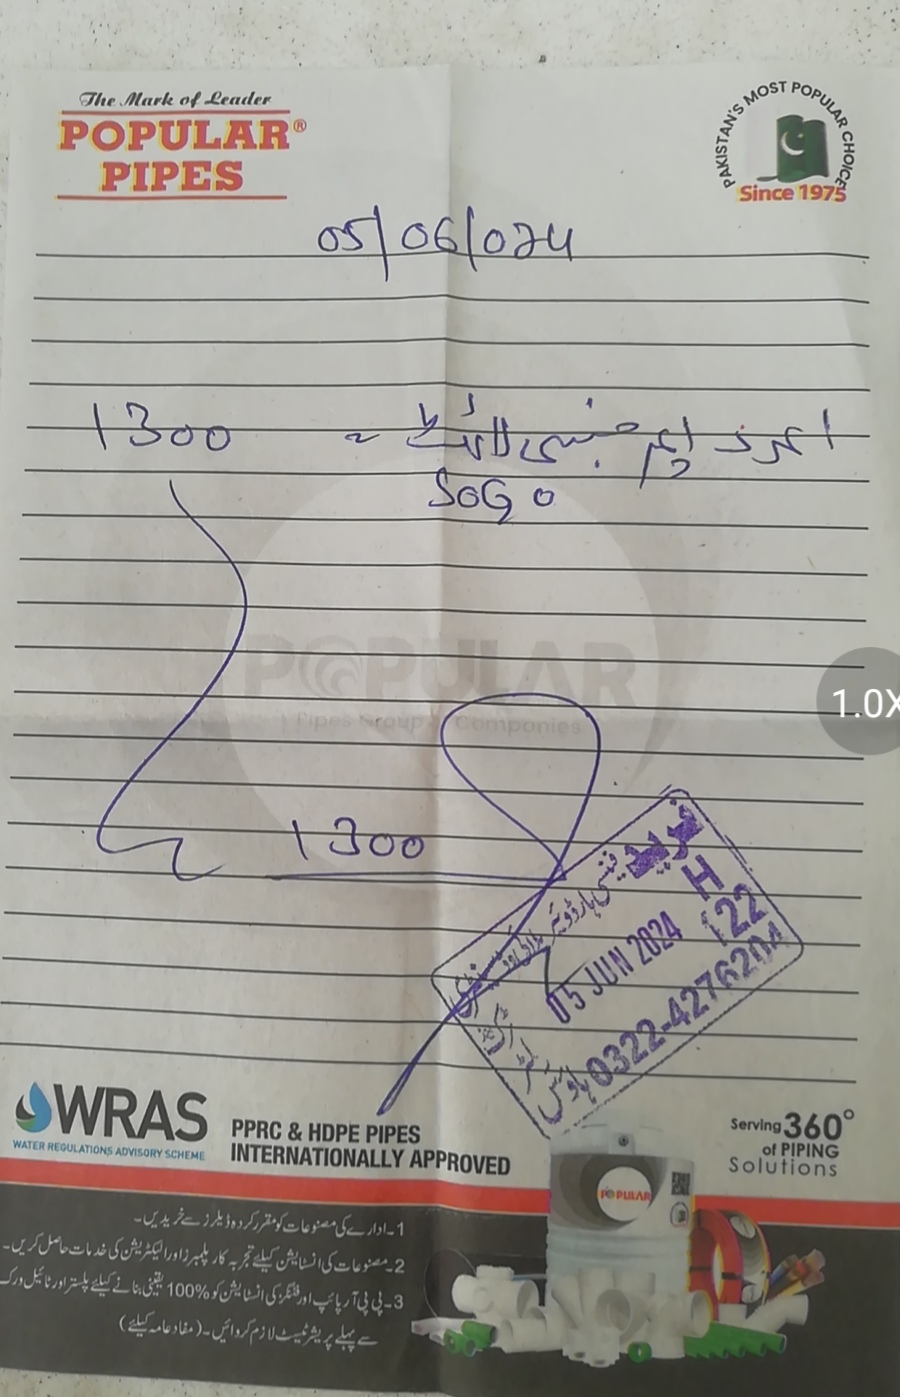 The Mark of Leader
POPULAR®
PIPES
PAKISTAN'S MOST POPULAR CHOICE
Since 1975
05/06/024
1 عدد ایمرجنسی لائٹ = 1300
SOGO
POPULAR
Pipes Group Companies
1300
فرید
فینسی ہارڈویئر
H
22
05 JUN 2024
ہاؤس 0322-4276204
WRAS
WATER REGULATIONS ADVISORY SCHEME
PPRC & HDPE PIPES
INTERNATIONALLY APPROVED
Serving 360°
of PIPING
Solutions
POPULAR
1۔ ادارے کی مصنوعات کو مقرر کردہ ڈیلرز سے خریدیں۔
2۔ مصنوعات کی انسٹالیشن کیلئے تجربہ کار پلمبرز اور الیکٹریشن کی خدمات حاصل کریں۔
3۔ پی پی آر پائپ اور فٹنگز کی انسٹالیشن کو 100% یقینی بنانے کیلئے پلستر اور ٹائیل ورک
سے پہلے پریشر ٹیسٹ لازم کروائیں۔ (مفاد عامہ کیلئے)
1.0X